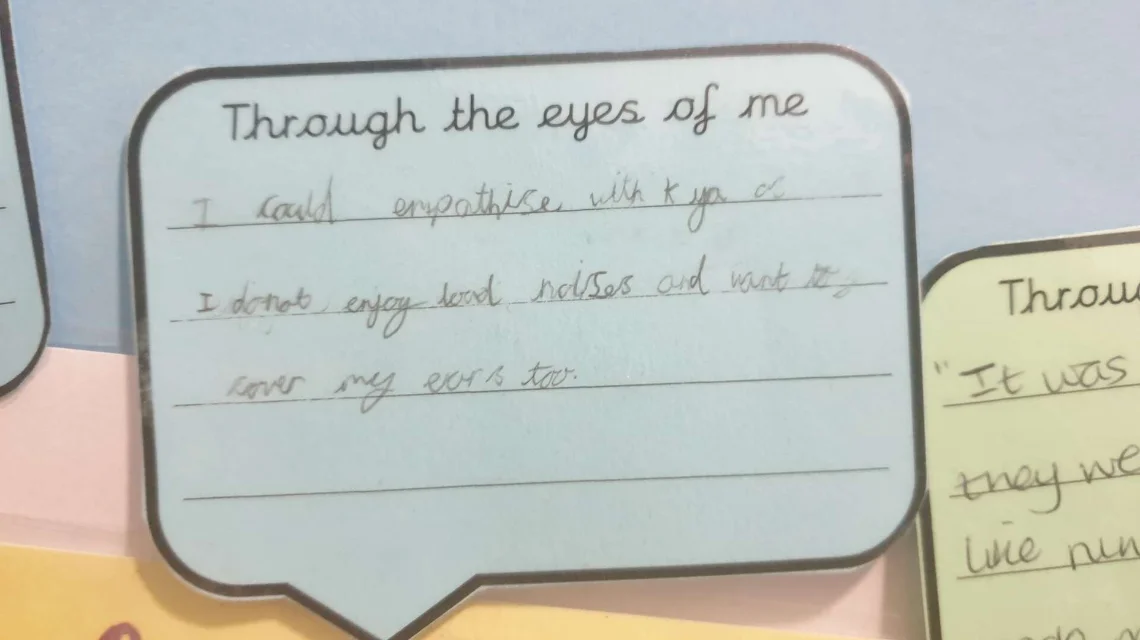 Through the eyes of me
I could empathise with Kya as
I do not enjoy loud noises and want to
cover my ears too.
Throu
"It was
they we
like run